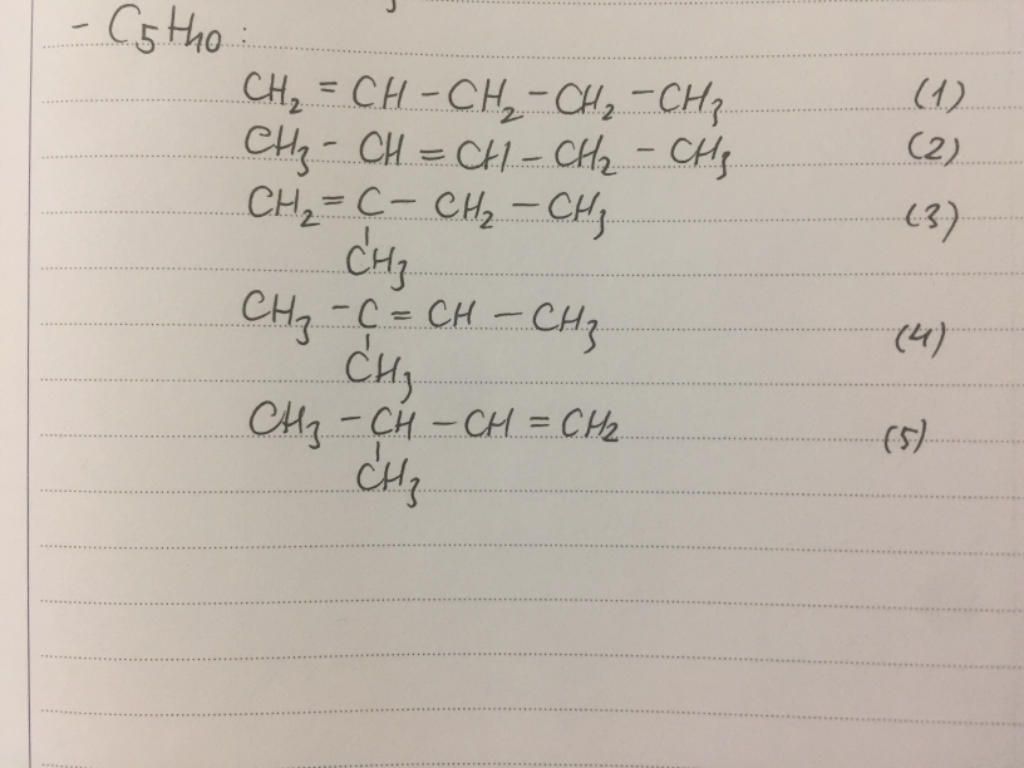 - C5H10 :
CH2 = CH - CH2 - CH2 - CH3 (1)
CH3 - CH = CH - CH2 - CH3 (2)
CH2 = C - CH2 - CH3 (3)
CH3
CH3 - C = CH - CH3 (4)
CH3
CH3 - CH - CH = CH2 (5)
CH3